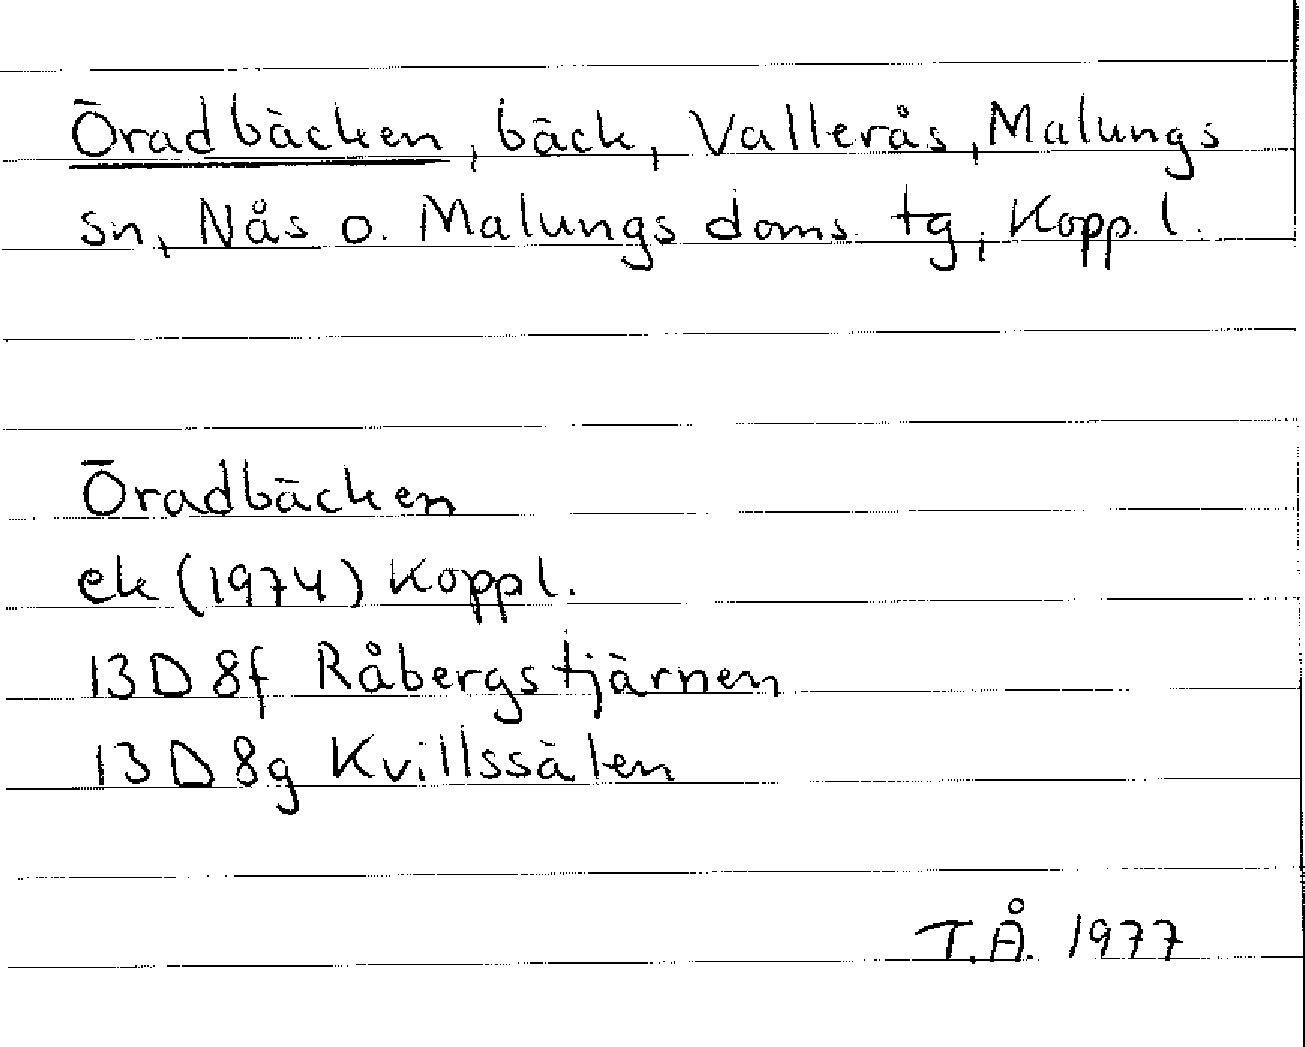 Öradbäcken, bäck, Vallerås, Malungs
sn, Nås o. Malungs doms. tg, Kopp. l.
Öradbäcken
ek (1974) Koppl.
13D 8f Råbergstjärnen
13D 8g Kvillssälen
T.Å. 1977